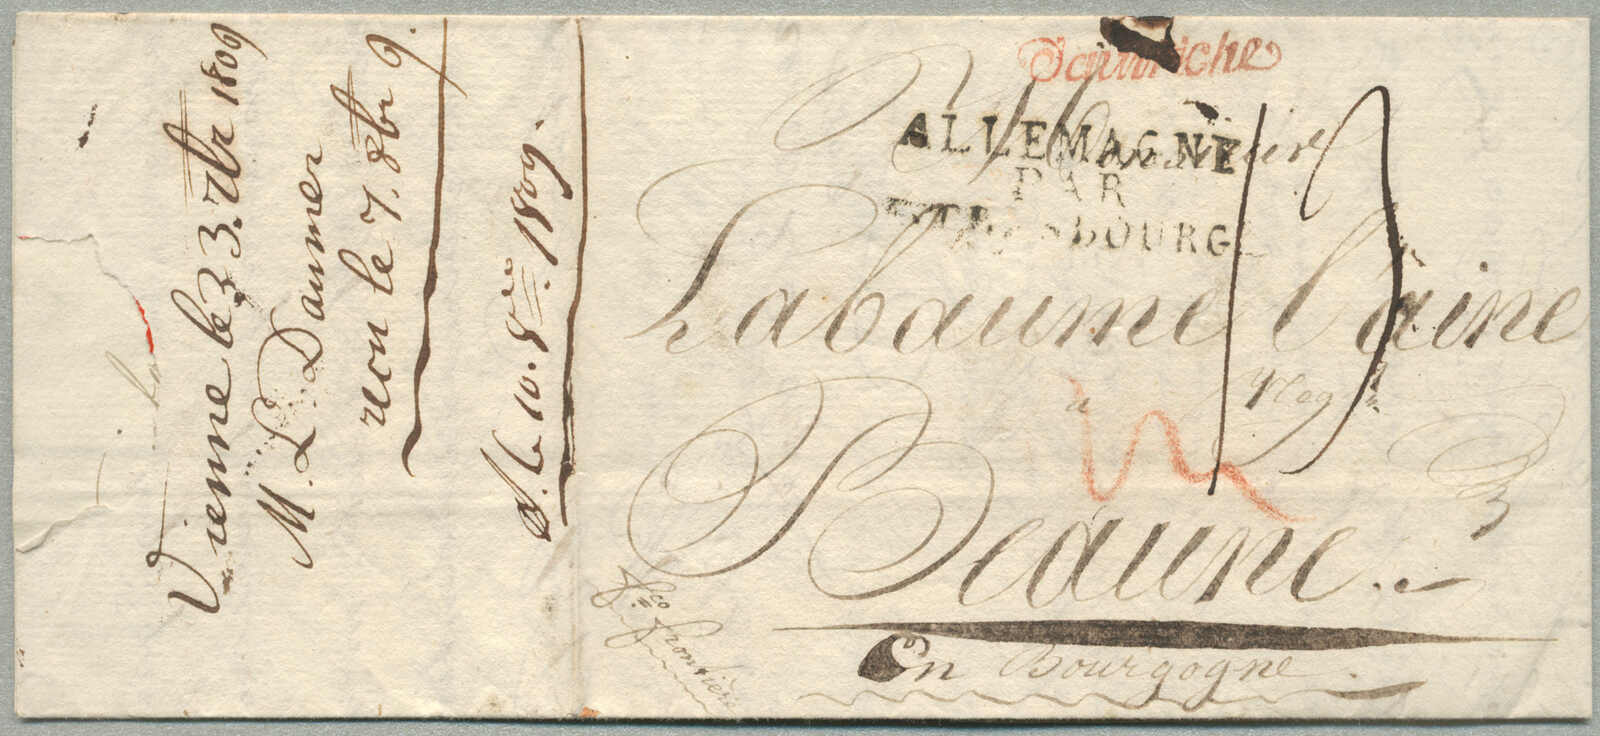 Vienne le 23. 7bre 1809
M. L. Daumer
recu le 7. 8bre 9.
le 10. 8bre 1809.
Monsieur
ALLEMAGNE
PAR
STRASBOURG
Labaume l'aine
à
Beaune.
En Bourgogne.
fco frontière